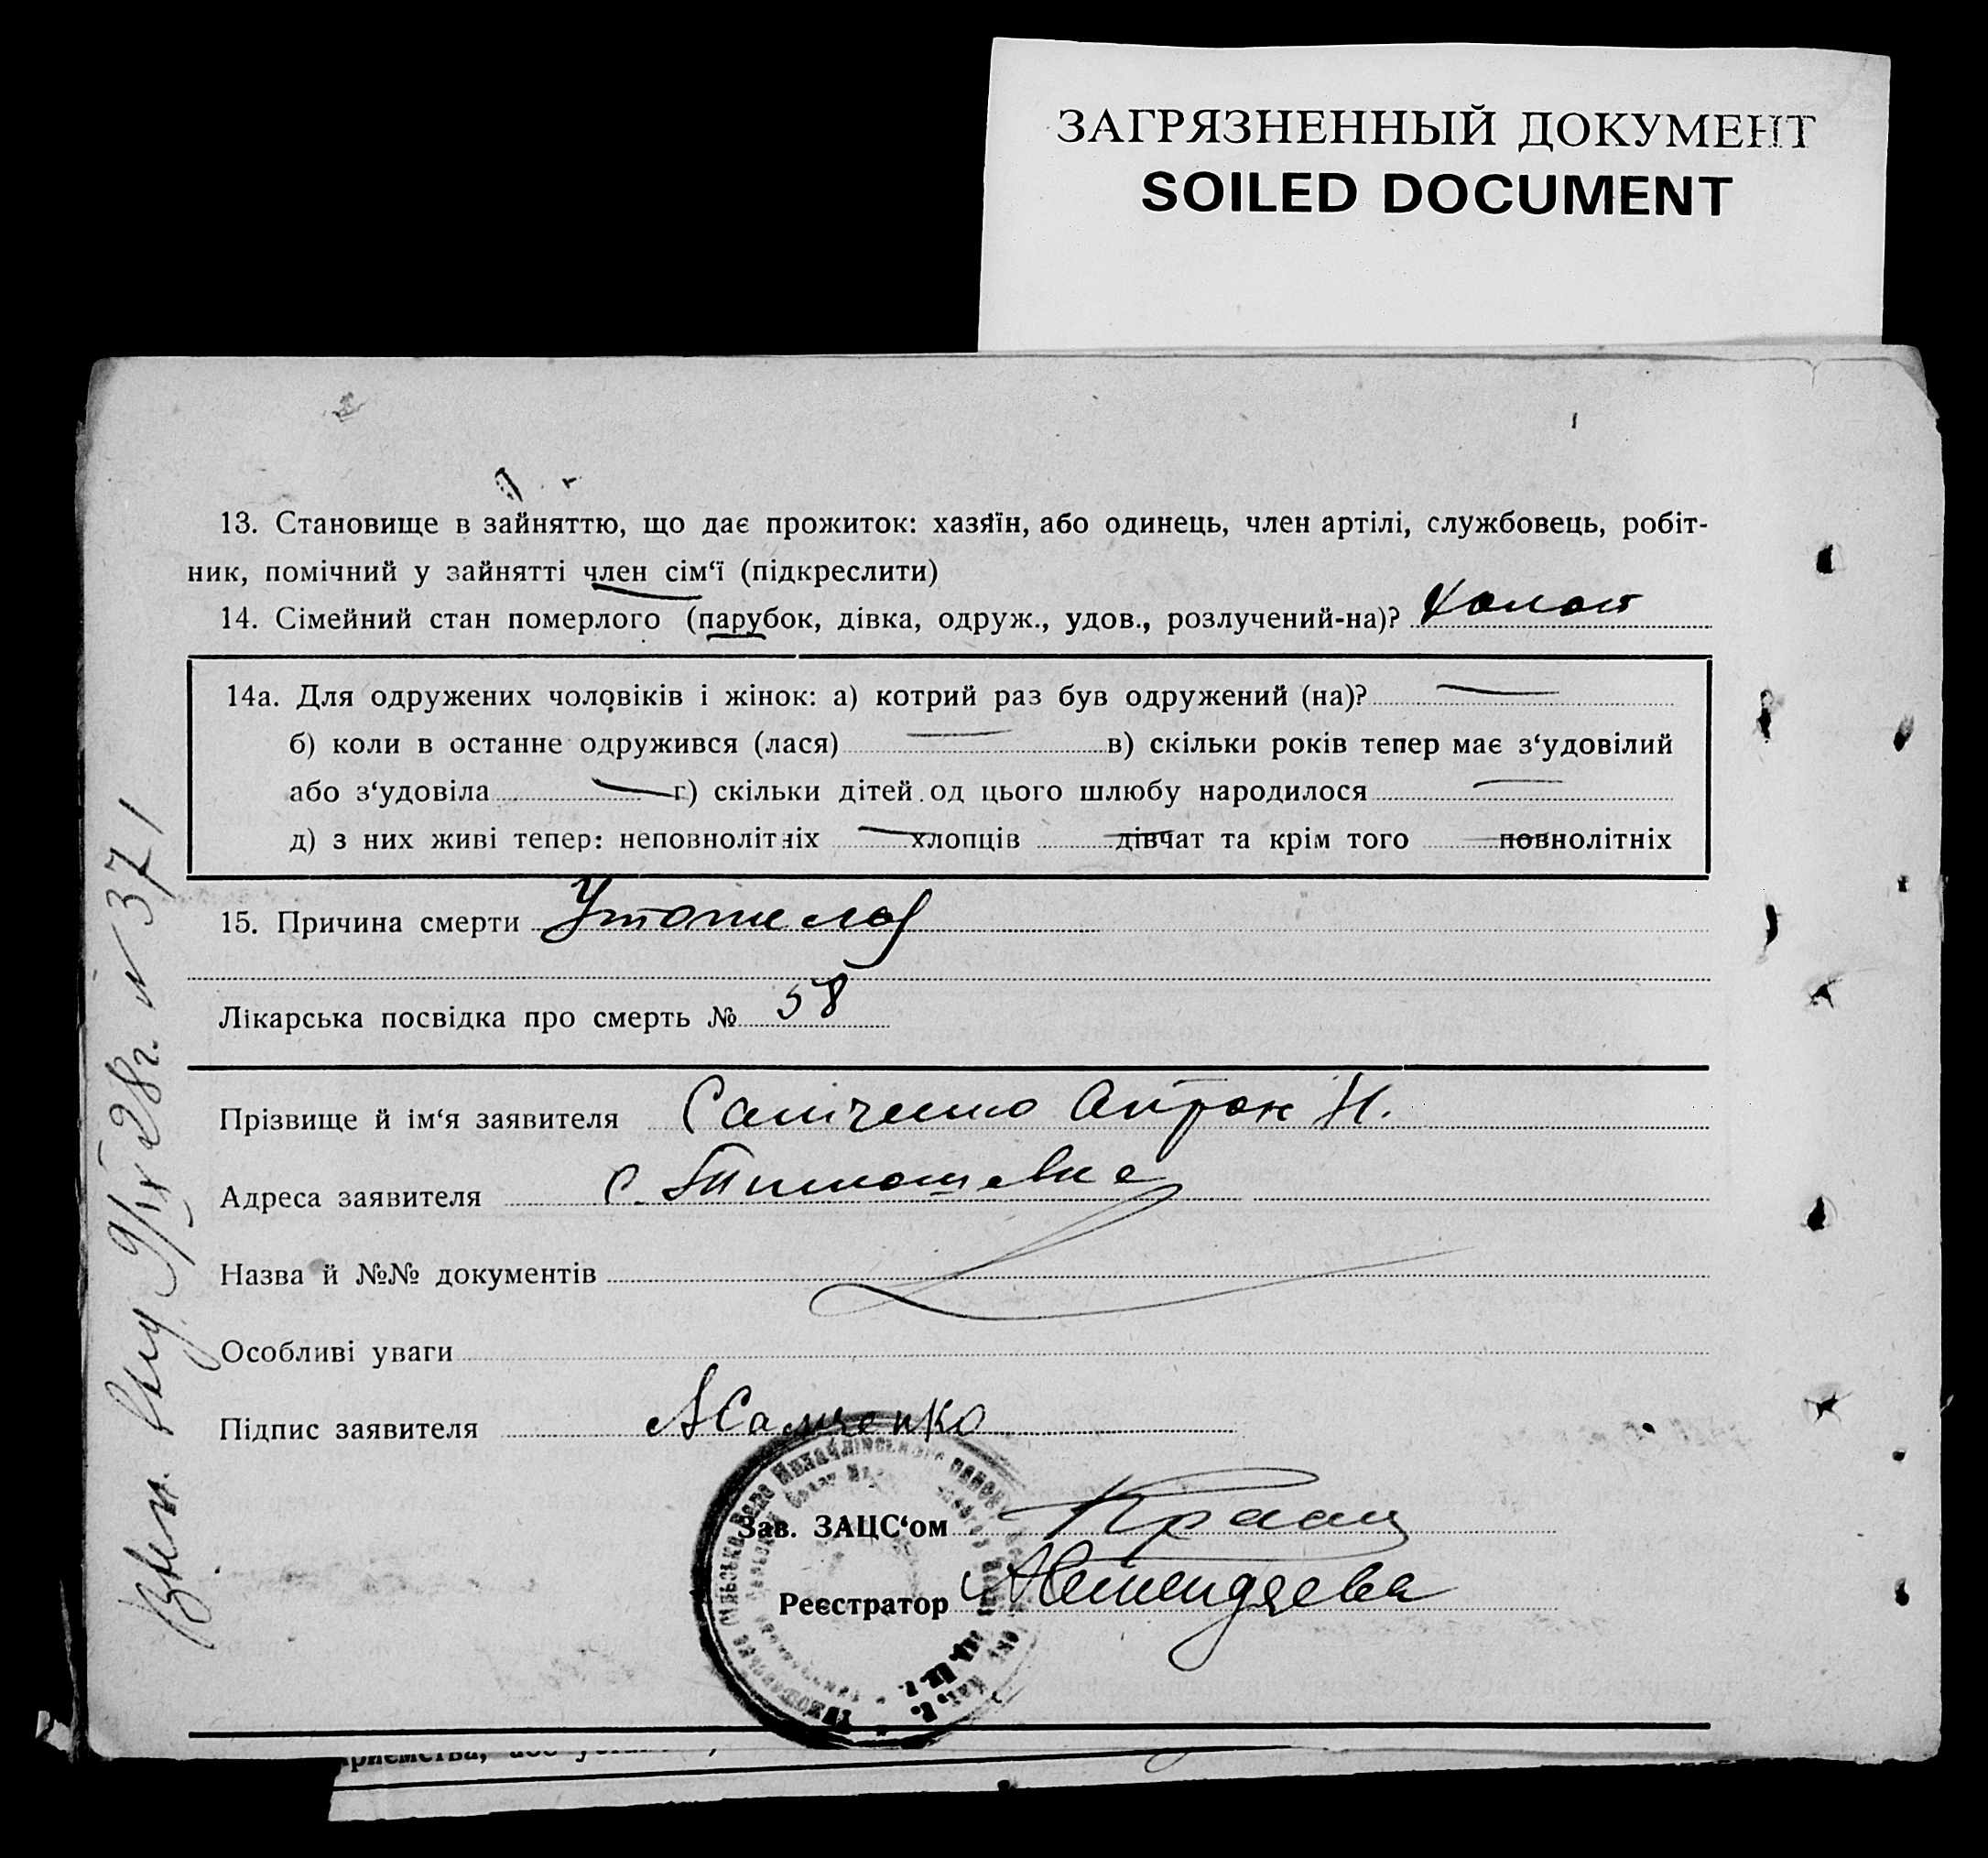 ЗАГРЯЗНЕННЫЙ ДОКУМЕНТ
SOILED DOCUMENT
13. Становище в зайняттю, що дає прожиток: хазяїн, або одинець, член артілі, службовець, робіт-
ник, помічний у зайнятті член сім‘ї (підкреслити)
14. Сімейний стан померлого (парубок, дівка, одруж., удов., розлучений-на)? Холост
14а. Для одружених чоловіків і жінок: а) котрий раз був одружений (на)?
б) коли в останнe одружився (лася) в) скільки років тепер має з‘удовілий
або з‘удовіла г) скільки дітей од цього шлюбу народилося
д) з них живі тепер: неповнолітніх хлопців дівчат та крім того повнолітніх
15. Причина смерти
Лікарська посвідка про смерть № 58
Прізвище й ім‘я заявителя Самченко
Адреса заявителя с. Тимошевка
Назва й №№ документів
Особливі уваги
Підпис заявителя АСамченко
Зав. ЗАЦС‘ом
Реєстратор
9/IX 28г. N 371